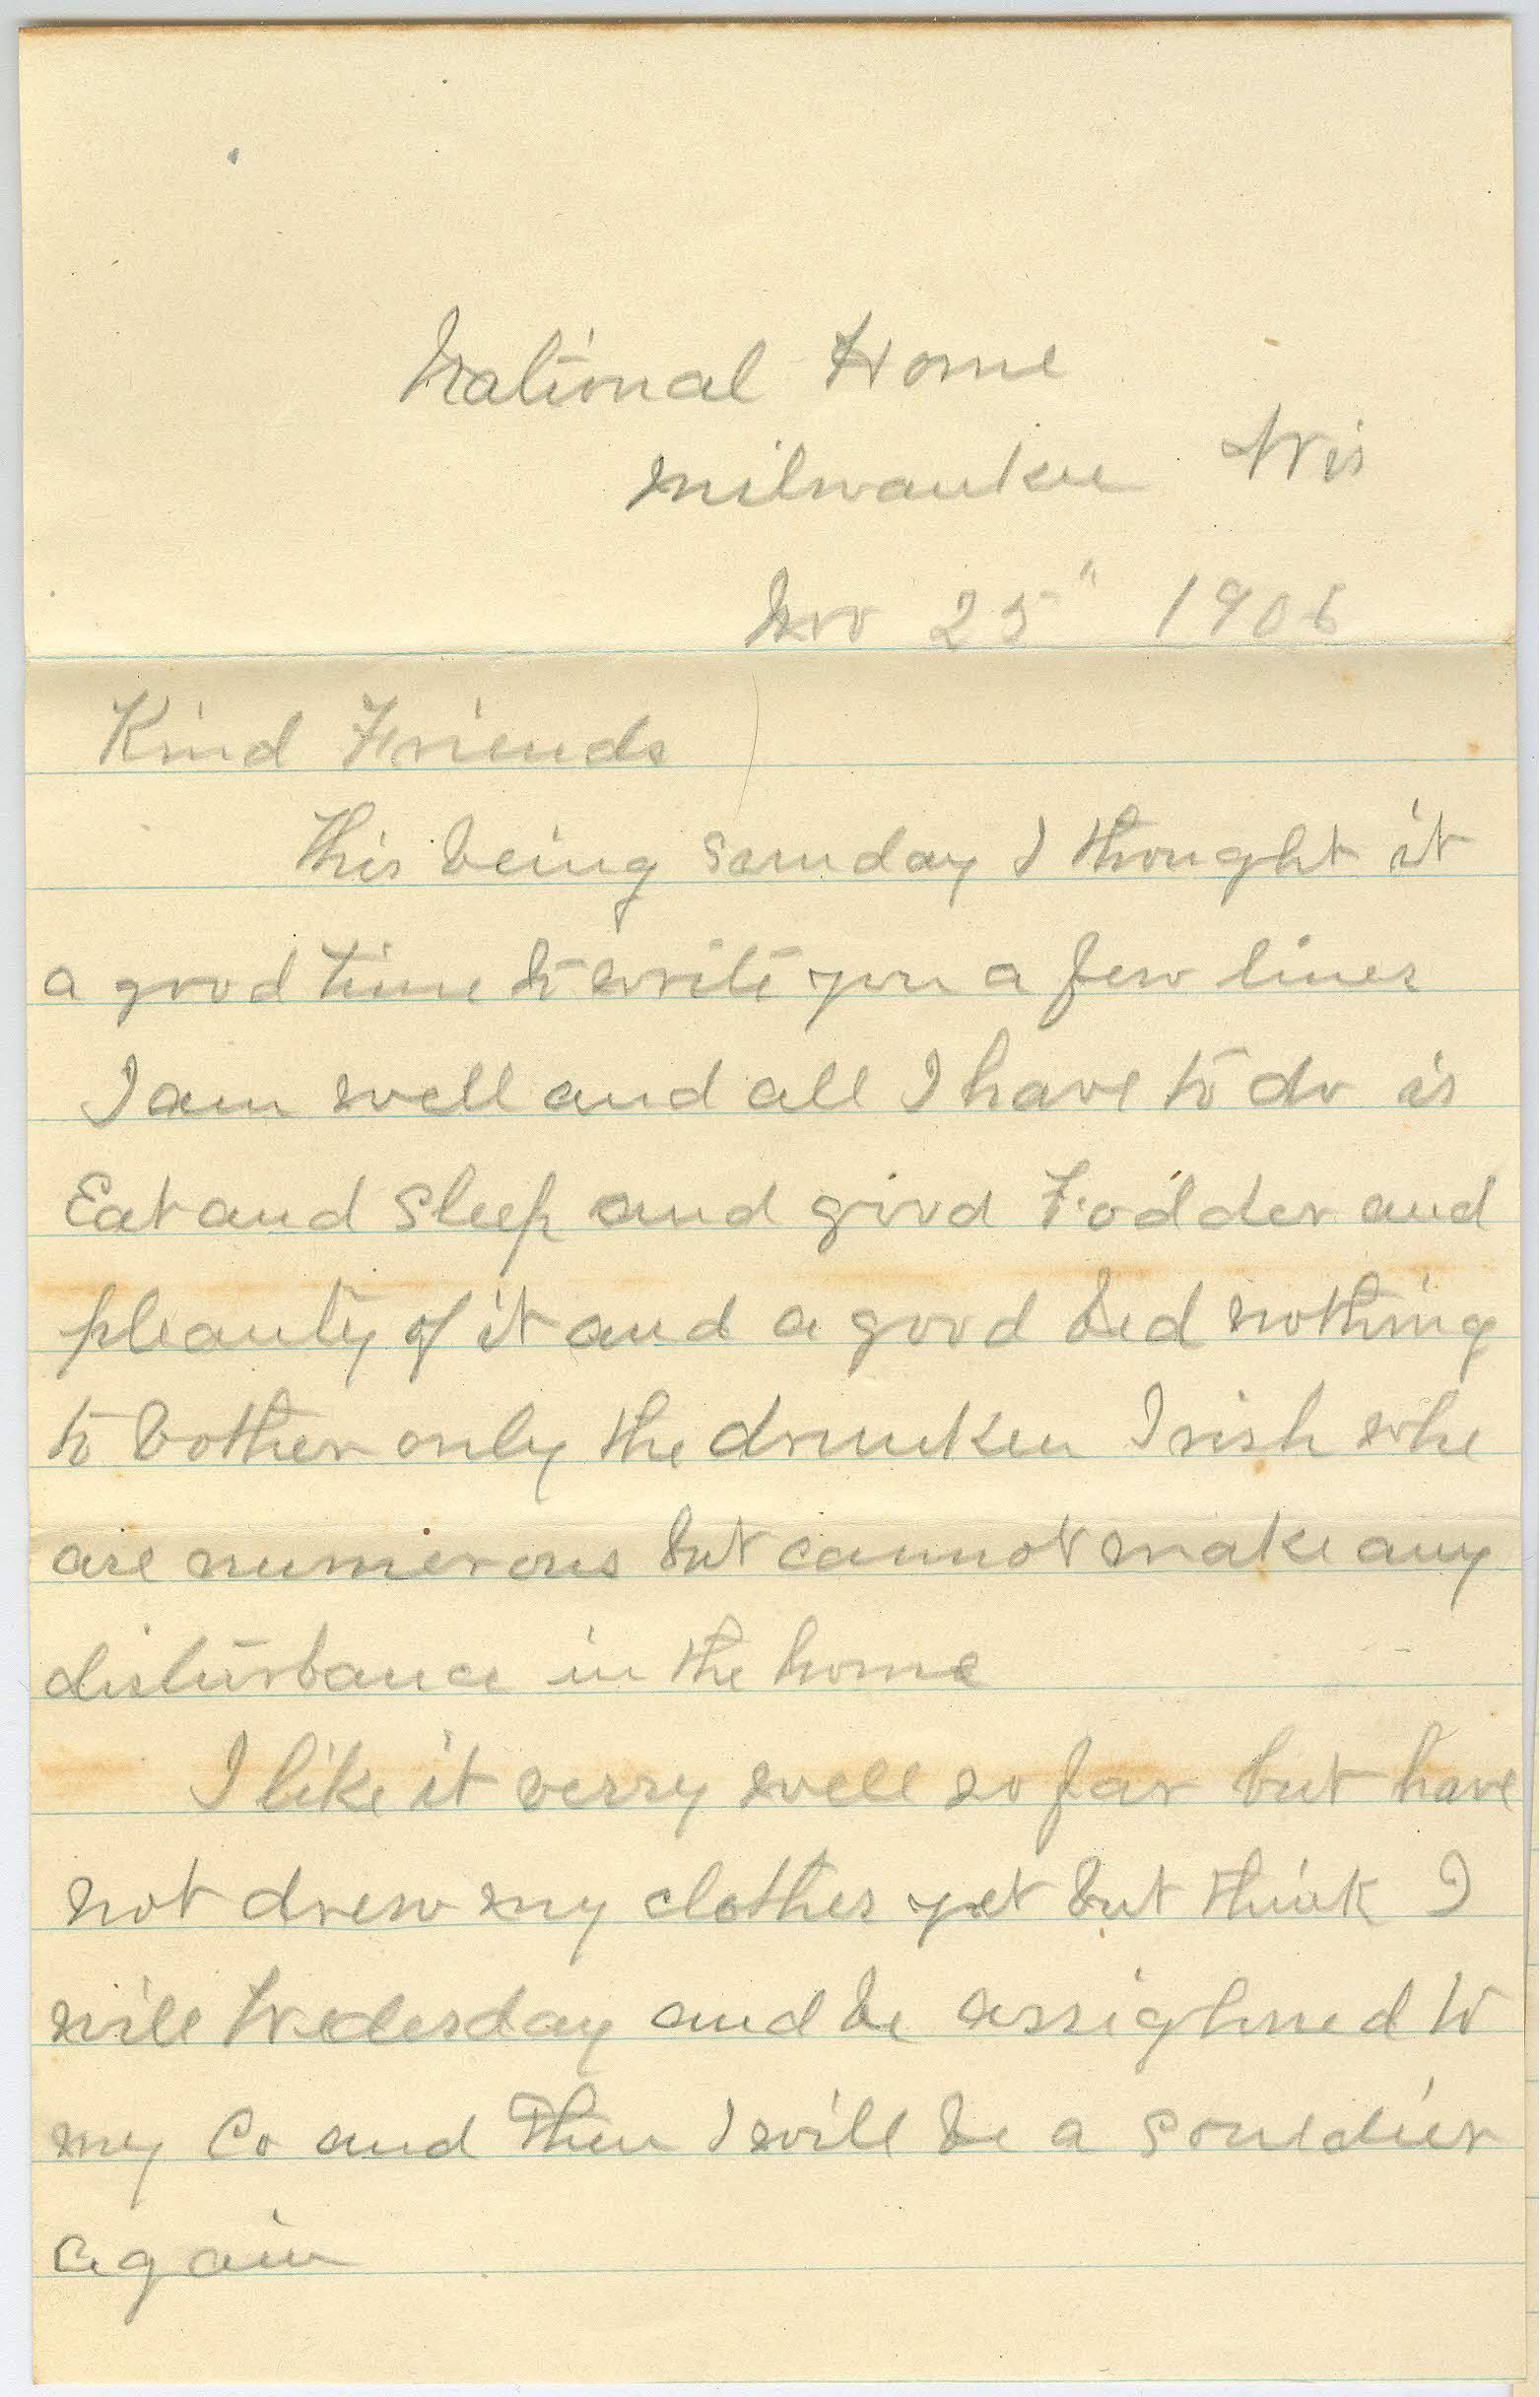 National Home
Milwaukee Wis
Nov 25" 1906
Kind Friends
This being Sunday I thought it
a good time to write you a few lines
I am well and all I have to do is
Eat and Sleep and good Fodder and
pleanty of it and a good bed nothing
to bother only the drunken Irish who
are numerous but cannot make any
disturbance in the home
I like it verry well so far but have
not drew my clothes yet but think I
will Wedesday and be assighned to
my Co and then I will be a Souldier
again